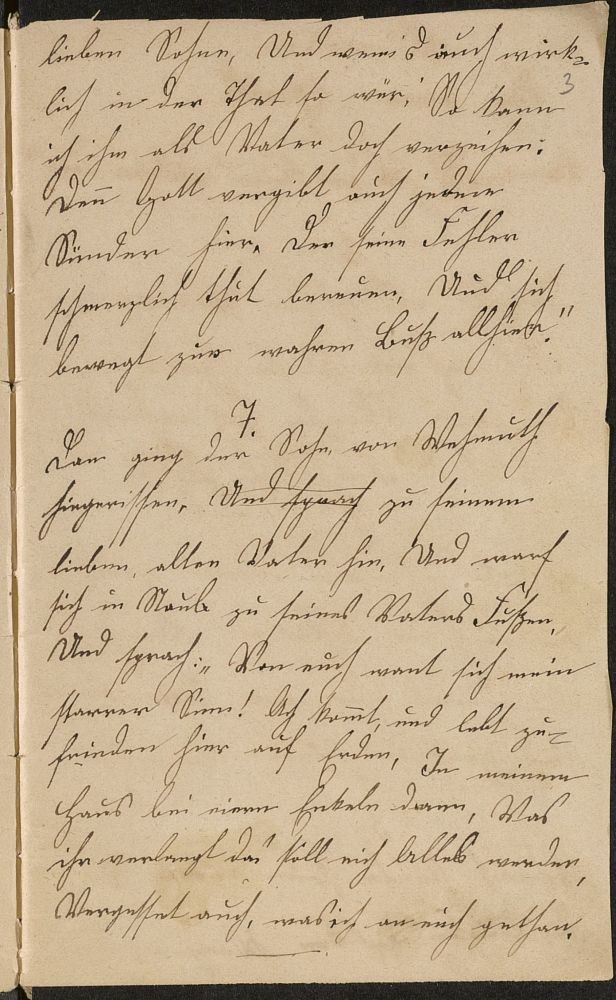 lieben Sohne, Und wenn's auch wirk=
3
lich in der That so wär', So kann
ich ihm als Vater doch verzeihen:
Denn Gott vergibt auch jedem
Sünder hier, Der seine Fehler
schmerzlich thut bereuen, Und sich
bewegt zur wahren Buß allhier."
7.
Dan ging der Sohn, von Wehmuth
hingerissen, Und sprach zu seinem
lieben, alten Vater hin, Und warf
sich in Staub zu seines Vaters Fußen,
Und sprach: „Von euch want sich mein
starrer Sinn! Ach komt, und lebt zu=
frieden hier auf Erden, In meinem
Haus bei eiern Enkeln dann, Was
ihr verlangt das soll eich Alles werden,
Vergesset auch, was ich an eich gethan.